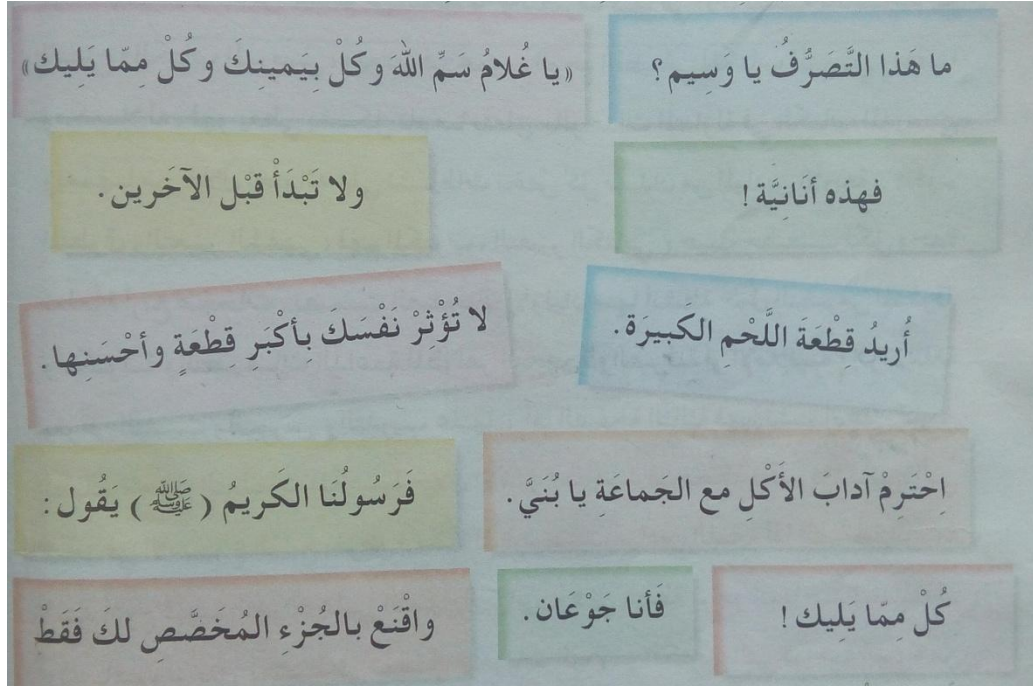 ما هَذا التَّصَرُّفُ يا وَسِيم؟
«يا غُلامُ سَمِّ اللهَ وَكُلْ بِيَمينِكَ وكُلْ مِمّا يَلِيك»
فهذه أنَانِيَّة!
ولا تَبْدَأْ قَبْل الآخَرين.
أُريدُ قِطْعَةَ اللَّحْمِ الكَبيرَة.
لا تُؤْثِرْ نَفْسَكَ بِأكْبَرِ قِطْعَةٍ وأحْسَنِها.
اِحْتَرِمْ آدابَ الأَكْلِ مع الجَماعَةِ يا بُنَيَّ.
فَرَسُولُنَا الكَريمُ (ﷺ) يَقُول:
كُلْ مِمّا يَلِيك!
فَأنا جَوْعَان.
واقْنَعْ بالجُزْءِ المُخَصَّصِ لكَ فَقَطْ